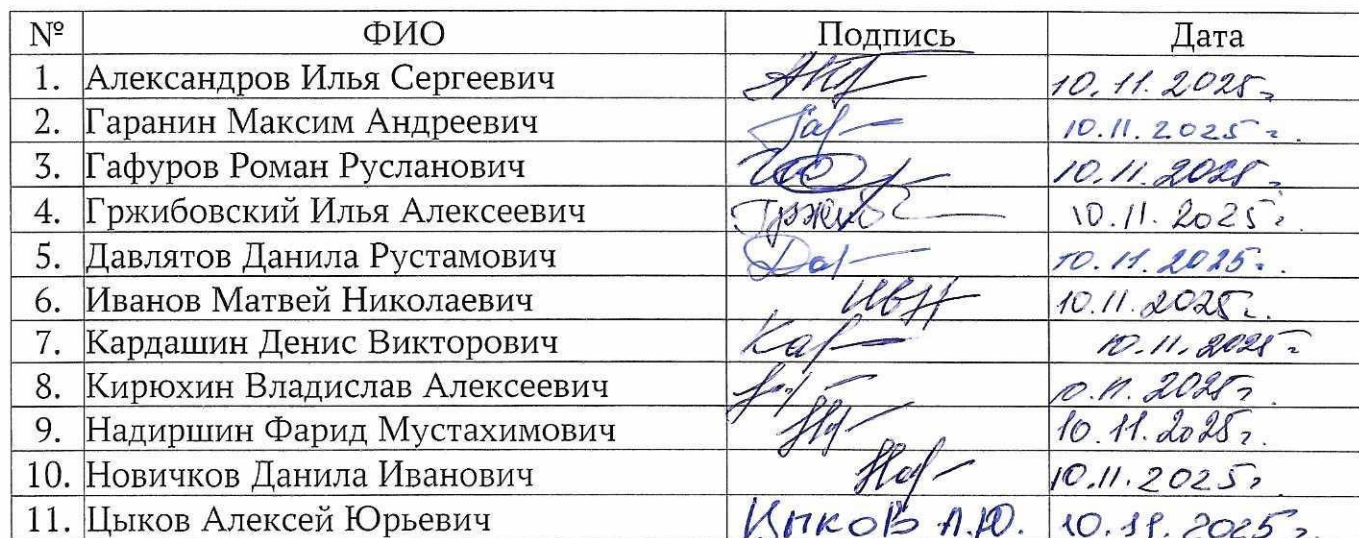 № ФИО Подпись Дата
1. Александров Илья Сергеевич 10.11.2025г
2. Гаранин Максим Андреевич Гар 10.11.2025г.
3. Гафуров Роман Русланович 10.11.2025г
4. Гржибовский Илья Алексеевич Гржиб 10.11.2025г.
5. Давлятов Данила Рустамович Дав 10.11.2025г.
6. Иванов Матвей Николаевич 10.11.2025г.
7. Кардашин Денис Викторович Кар 10.11.2025г
8. Кирюхин Владислав Алексеевич 10.11.2025г
9. Надиршин Фарид Мустахимович 10.11.2025г.
10. Новичков Данила Иванович 10.11.2025г
11. Цыков Алексей Юрьевич Цыков А.Ю. 10.11.2025г.